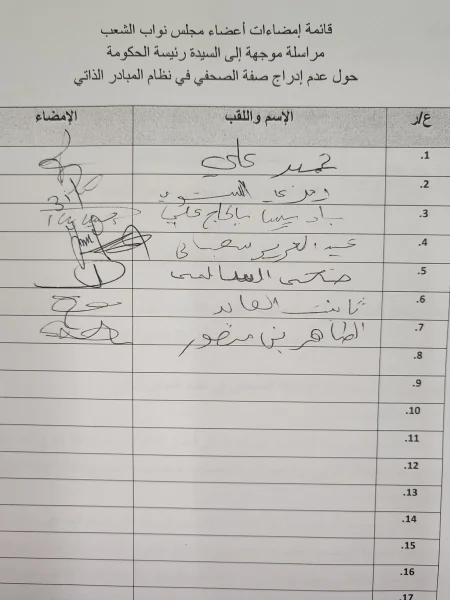 قائمة إمضاءات أعضاء مجلس نواب الشعب
مراسلة موجهة إلى السيدة رئيسة الحكومة
حول عدم إدراج صفة الصحفي في نظام المبادر الذاتي
ع/ر الإسم واللقب الإمضاء
1. علي
2.
3. بالحاج علي
4. عبد العزيز شعباني
5. ضحى السالمي
6. ثابت العابد
7. الطاهر بن منصور
8.
9.
10.
11.
12.
13.
14.
15.
16.
17.